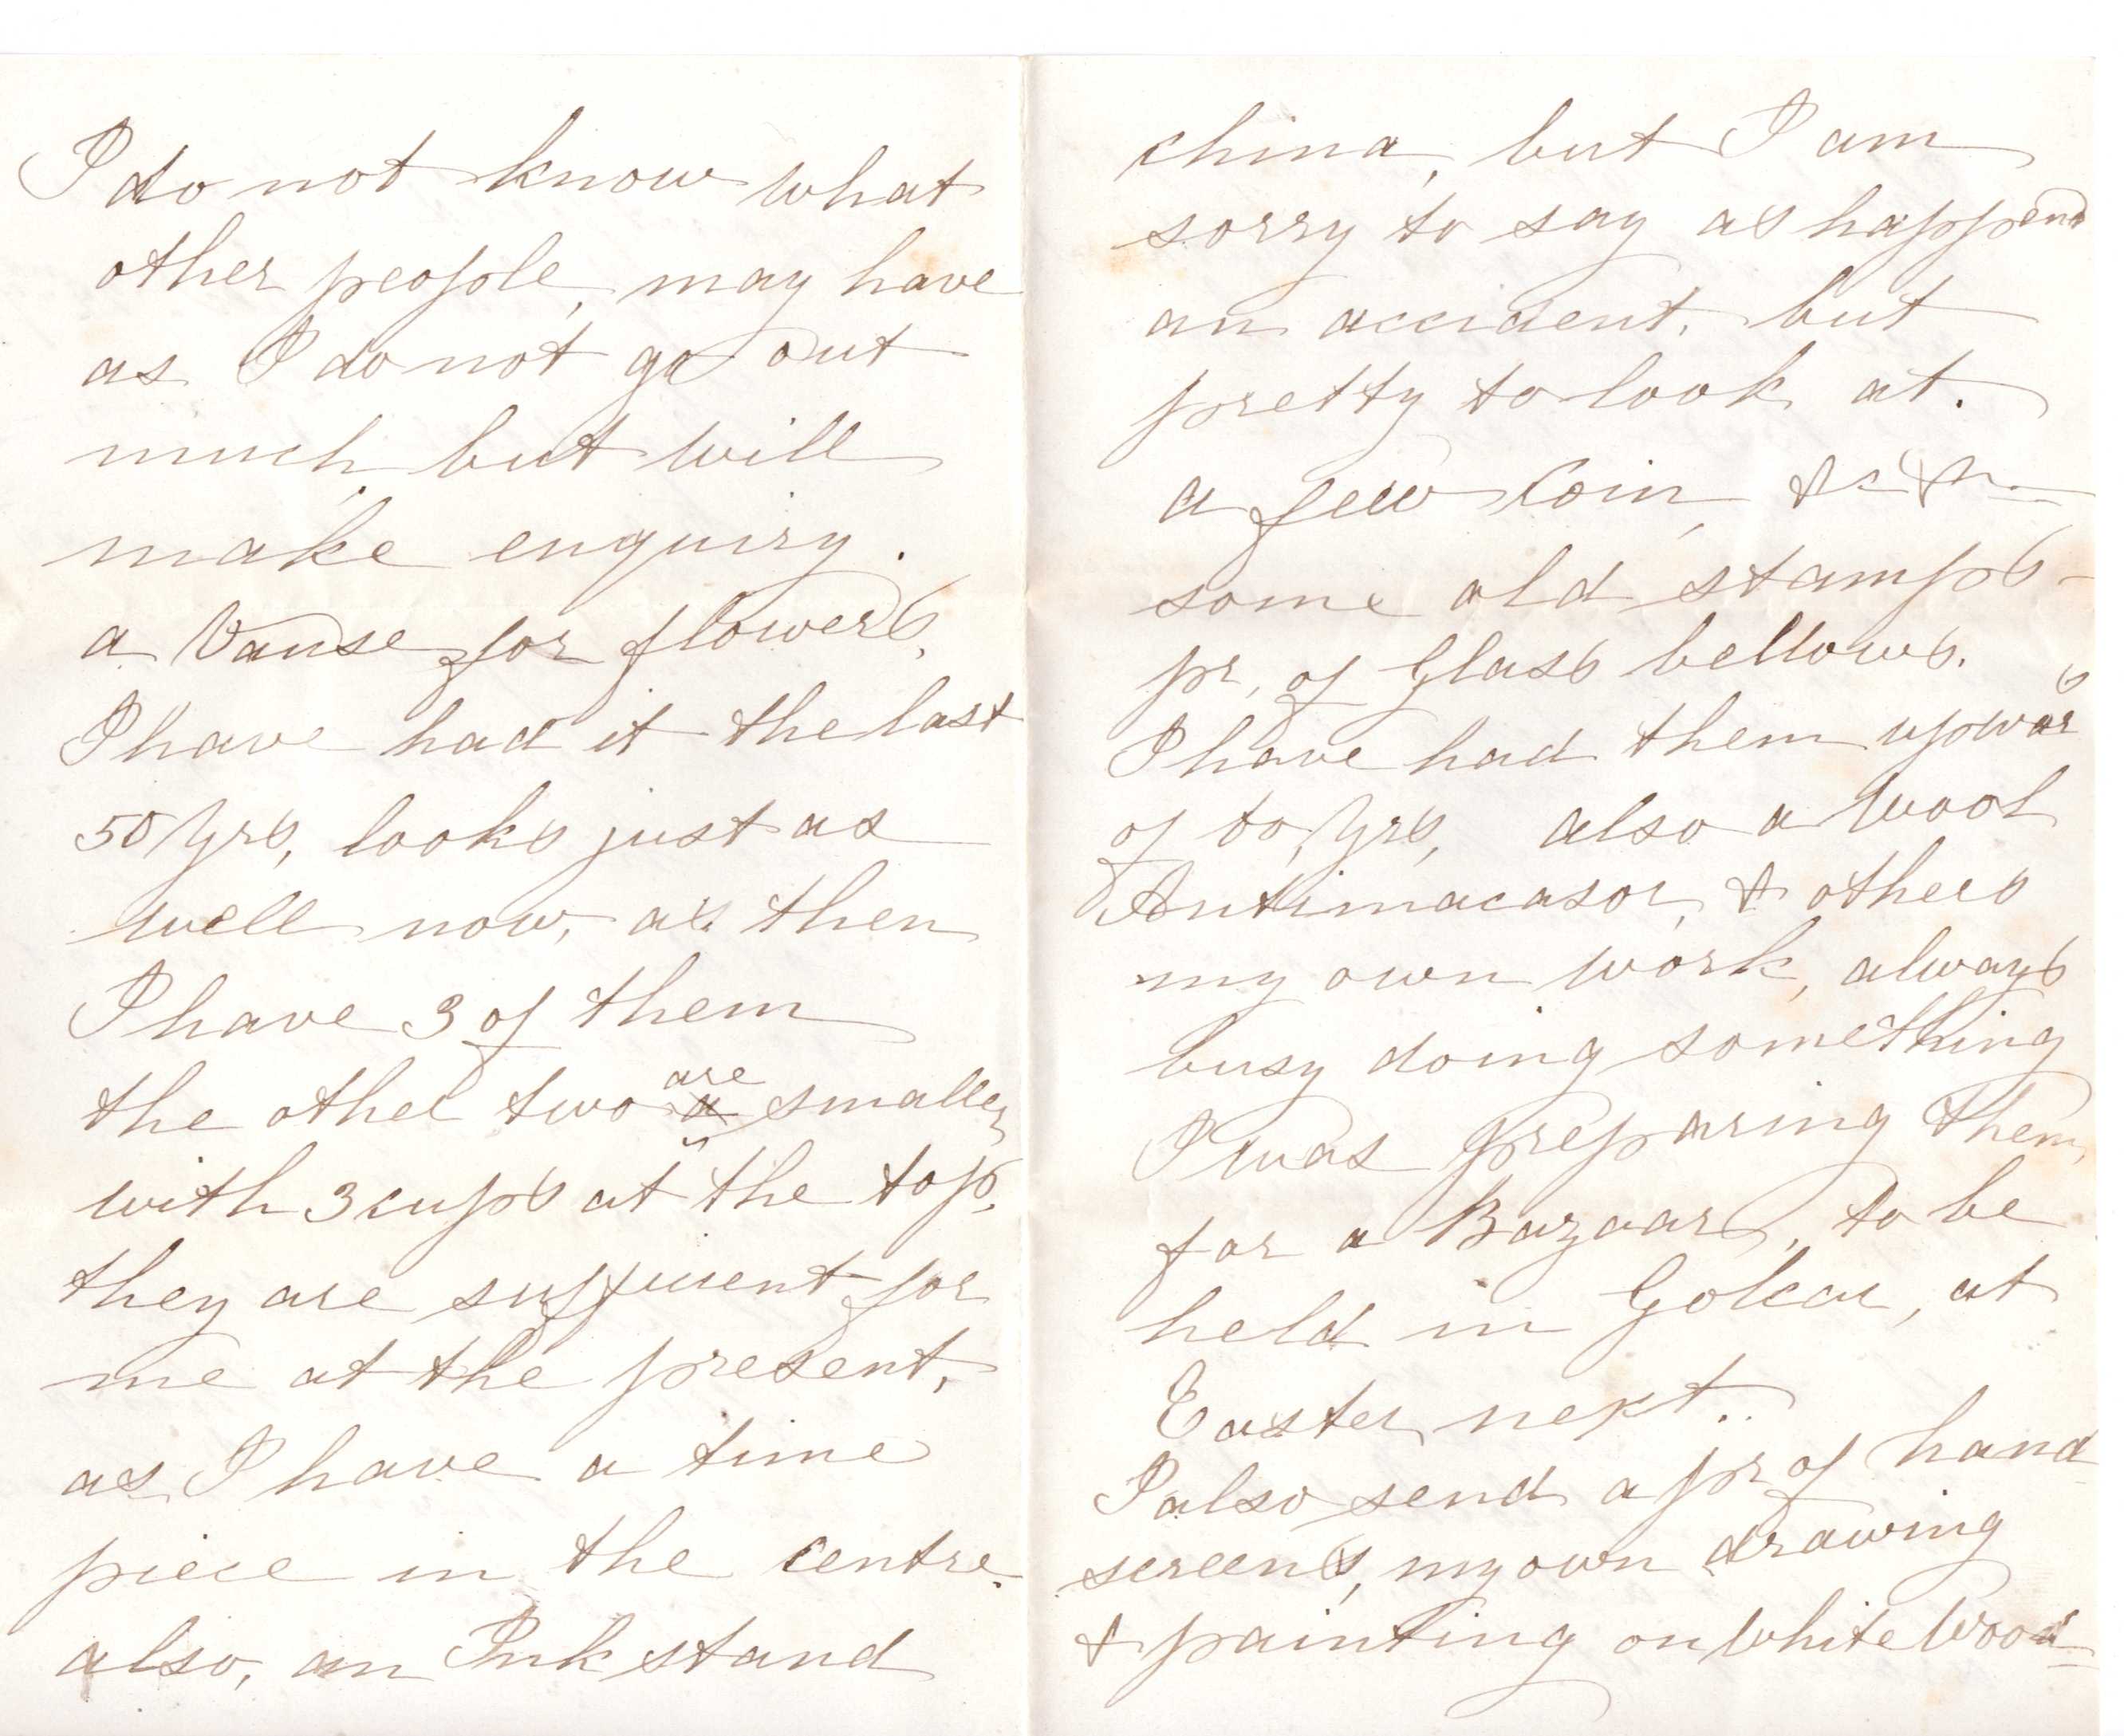 I do not know what
other people, may have
as I do not go out
much, but will
make enquiry.
a Vause for flowers,
I have had it the last
50 Yrs, looks just as
well now, as then
I have 3 of them
the other two are a smaller
with 3 cups at the top,
they are suffucient for
me at the present,
as I have a time
piece in the centre.
also, an Ink stand
china, but I am
sorry to say as happend
an accident, but
pretty to look at.
a few Coin, &c &c
some old stamps -
pr, of Glass bellows.
I have had them upwars
of Yrs, also a Wool
Antimacasor, & others
my own work, always
busy doing something
I was preparing them,
for a Bazaar, to be
held in Golcar, at
Easter next.
I also send a pr of hand
screens, my own drawing
& painting on White Wood